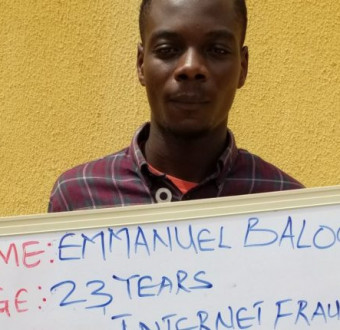 ME: EMMANUEL BALO
GE: 23 YEARS
INTERNET FRAU